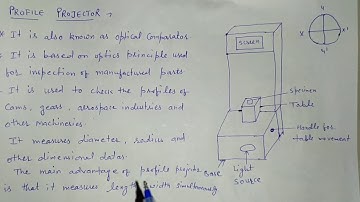 PROFILE PROJECTOR,
* It is also known as optical Comparators
* It is based on optics principle used
for inspection of manufactured parts
- It is used to check the profiles of
Cams, gears, aerospace industries and
other machineries.
It measures diameter, radius and
other dimensional datas.
The main advantage of profile
is that it measures length width simultaneously
SCREEN
Specimen
Table
Handle for
table movement
Base
Light
Source
Y
X
X'
Y'